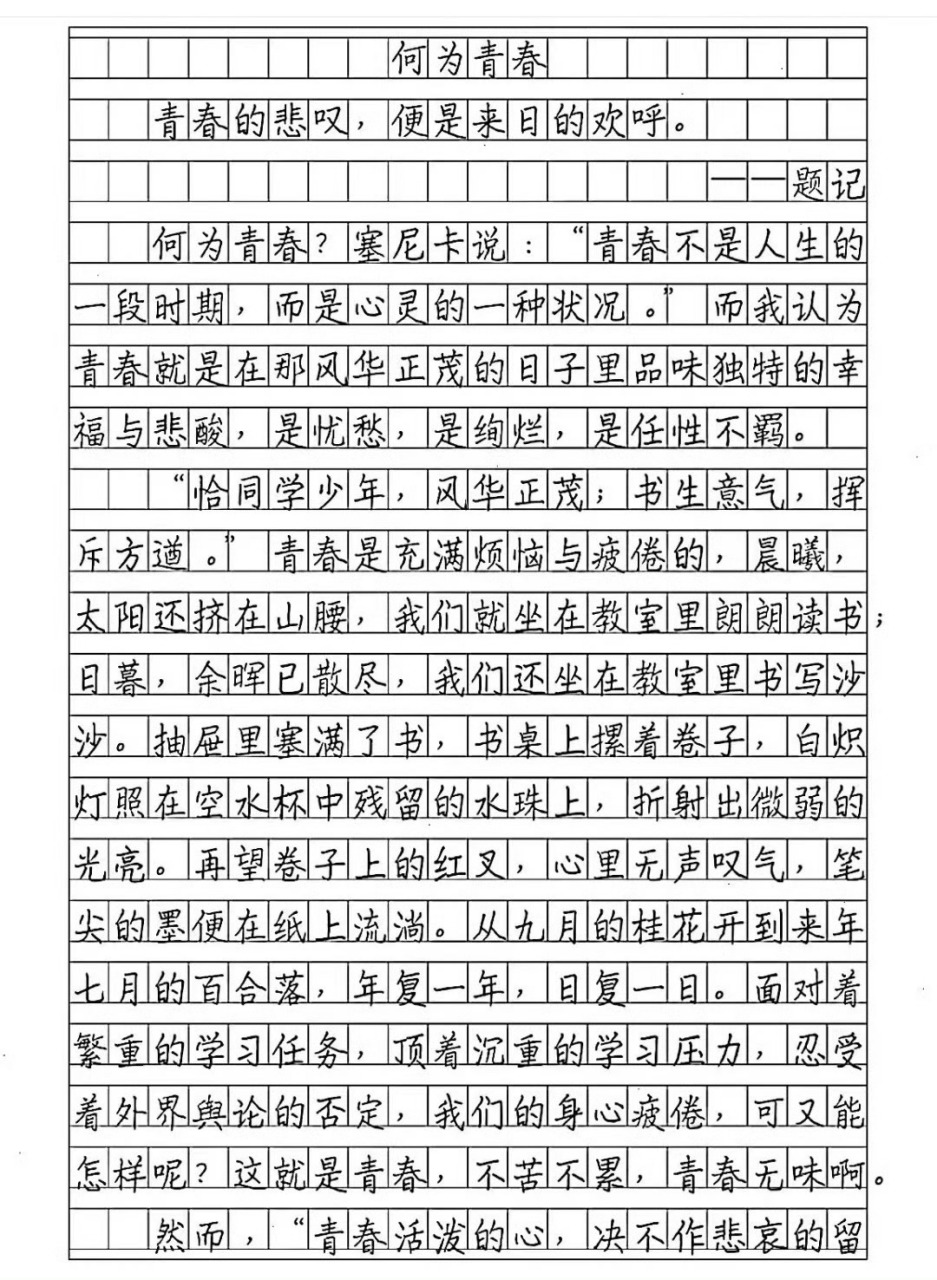 何为青春
青春的悲叹，便是来日的欢呼。
——题记
何为青春？塞尼卡说：“青春不是人生的
一段时期，而是心灵的一种状况。”而我认为
青春就是在那风华正茂的日子里品味独特的幸
福与悲酸，是忧愁，是绚烂，是任性不羁。
“恰同学少年，风华正茂；书生意气，挥
斥方遒。”青春是充满烦恼与疲倦的，晨曦，
太阳还挤在山腰，我们就坐在教室里朗朗读书；
日暮，余晖已散尽，我们还坐在教室里书写沙
沙。抽屉里塞满了书，书桌上摞着卷子，白炽
灯照在空水杯中残留的水珠上，折射出微弱的
光亮。再望卷子上的红叉，心里无声叹气，笔
尖的墨便在纸上流淌。从九月的桂花开到来年
七月的百合落，年复一年，日复一日。面对着
繁重的学习任务，顶着沉重的学习压力，忍受
着外界舆论的否定，我们的身心疲倦，可又能
怎样呢？这就是青春，不苦不累，青春无味啊。
然而，“青春活泼的心，决不作悲哀的留